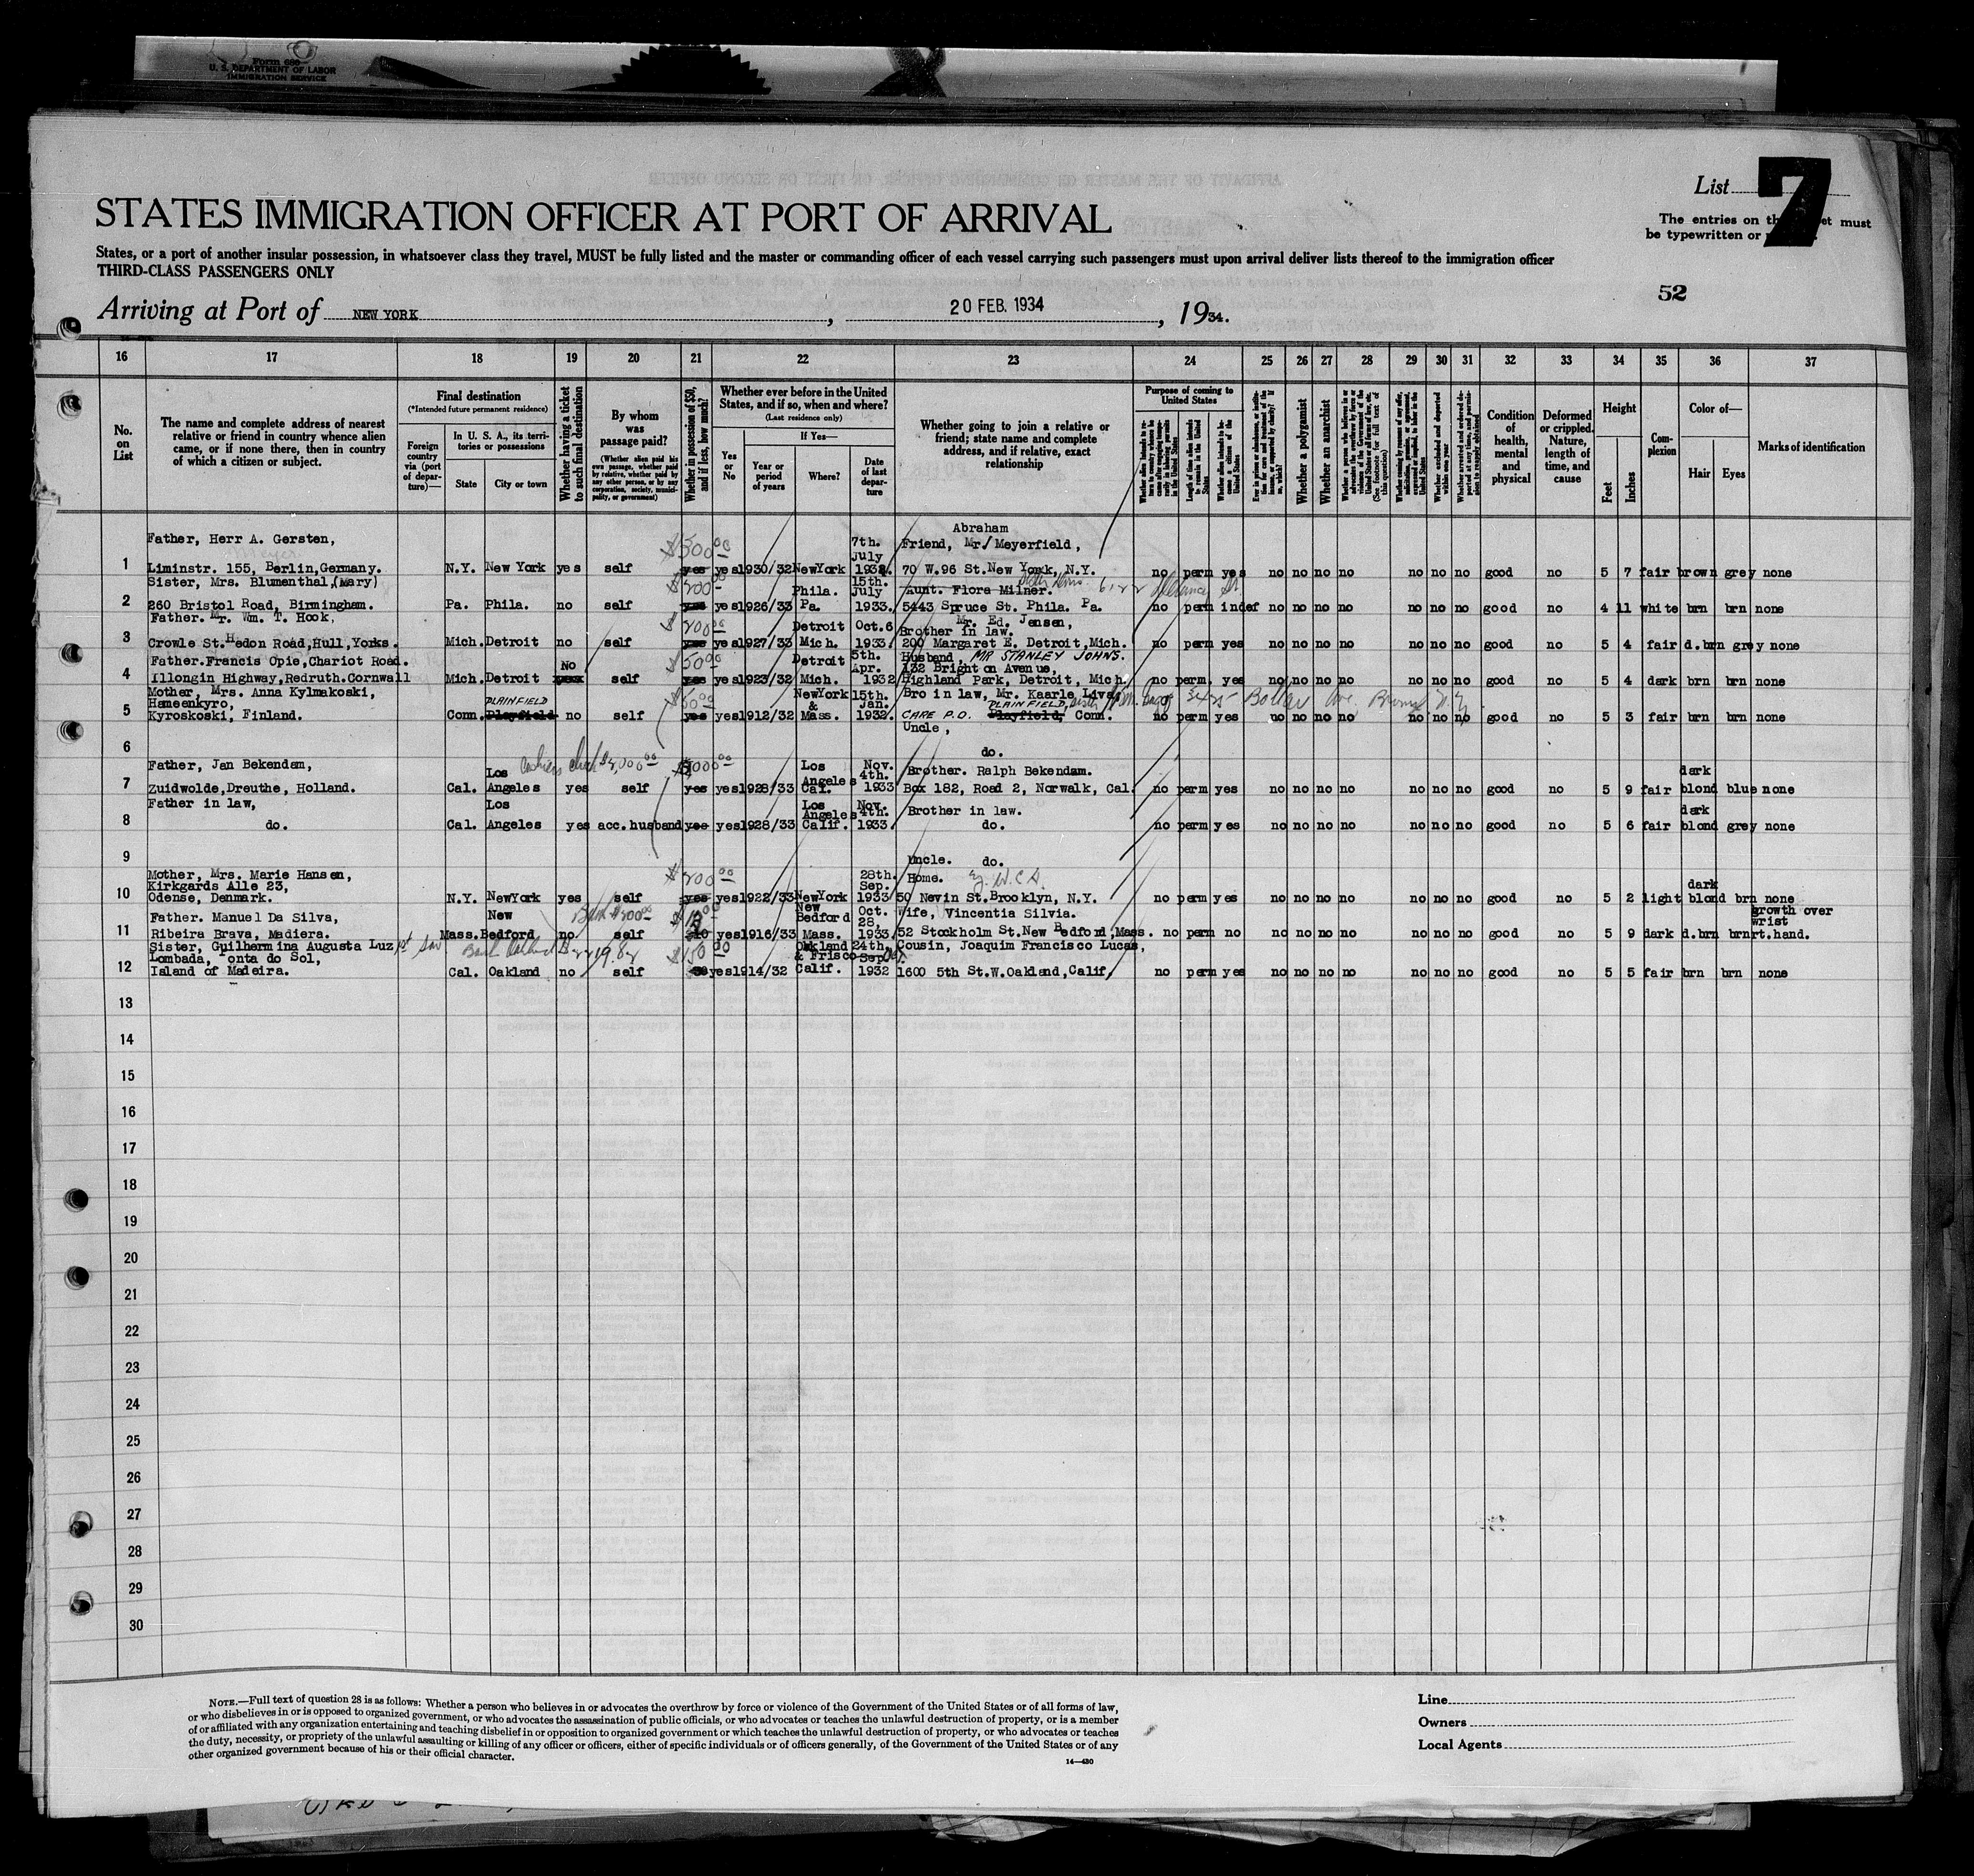 Form 680
U. S. DEPARTMENT OF LABOR
IMMIGRATION SERVICE
List 7
STATES IMMIGRATION OFFICER AT PORT OF ARRIVAL
The entries on this sheet must
be typewritten or
States, or a port of another insular possession, in whatsoever class they travel, MUST be fully listed and the master or commanding officer of each vessel carrying such passengers must upon arrival deliver lists thereof to the immigration officer
THIRD-CLASS PASSENGERS ONLY
52
Arriving at Port of NEW YORK, 20 FEB. 1934, 1934.
16 17 18 19 20 21 22 23 24 25 26 27 28 29 30 31 32 33 34 35 36 37
No. on List
The name and complete address of nearest relative or friend in country whence alien came, or if none there, then in country of which a citizen or subject.
Final destination
(*Intended future permanent residence)
Foreign country via (port of departure)—
In U. S. A., its territories or possessions
State
City or town
Whether having a ticket to such final destination
By whom was passage paid?
(Whether alien paid his own passage, whether paid by relative, whether paid by any other person, or by any corporation, society, municipality, or government)
Whether in possession of $50, and if less, how much?
Whether ever before in the United States, and if so, when and where?
(Last residence only)
Yes or No
If Yes—
Year or period of years
Where?
Date of last departure
Whether going to join a relative or friend; state name and complete address, and if relative, exact relationship
Purpose of coming to United States
Length of time alien intends to remain in the United States
Whether alien intends to become a citizen of the United States
Whether a polygamist
Whether an anarchist
(See footnote for full text of this question)
Whether excluded and deported within one year
Condition of health, mental and physical
Deformed or crippled. Nature, length of time, and cause
Height
Feet
Inches
Complexion
Color of—
Hair
Eyes
Marks of identification
Father, Herr A. Gersten, $500.00 7th. July Abraham Friend, Mr/Meyerfield,
1 Liminstr. 155, Berlin,Germany. N.Y. New York yes self yes yes 1930/32 NewYork 1932. 70 W.96 St.New York, N.Y. no perm yes no no no no no no no good no 5 7 fair brown grey none
Sister, Mrs. Blumenthal,(Mary) $200.00 Phila. 15th. July Aunt. Flora Milner.
2 260 Bristol Road, Birmingham. Pa. Phila. no self yes yes 1926/33 Pa. 1933. 5443 Spruce St. Phila. Pa. no perm indef no no no no no no no good no 4 11 white brn brn none
Father. Mr. Wm. T. Hook, $200.00 Detroit Oct.6 Mr. Ed. Jensen, Brother in law.
3 Crowle St.Hedon Road,Hull,Yorks. Mich. Detroit no self yes yes 1927/33 Mich. 1933 200 Margaret E. Detroit,Mich. no perm yes no no no no no no no good no 5 4 fair d.brn grey none
Father.Francis Opie,Chariot Road. No $50.00 Detroit 5th. Apr. Husband, MR STANLEY JOHNS. 132 Brighton Avenue,
4 Illongin Highway,Redruth.Cornwall Mich. Detroit self yes yes 1923/32 Mich. 1932 Highland Park, Detroit, Mich. no perm. yes no no no no no no no good no 5 4 dark brn brn none
Mother, Mrs. Anna Kylmakoski, Hameenkyro, PLAINFIELD NewYork & 15th. Jan. Bro in law, Mr. Kaarle PLAINFIELD,
5 Kyroskoski, Finland. Conn. Playfield no self yes yes 1912/32 Mass. 1932. CARE P.O. Playfield, Conn. no perm yes no no no no no no no good no 5 3 fair brn brn none
6 Uncle, do.
Father, Jan Bekendam, Los Los Angeles Nov. 4th. Brother. Ralph Bekendam. dark
7 Zuidwolde,Dreuthe, Holland. Cal. Angeles yes self yes yes 1928/33 Cal. 1933 Box 182, Road 2, Norwalk, Cal. no perm yes no no no no no no no good no 5 9 fair blond blue none
Father in law, Los Los Angeles Nov. 4th. Brother in law. dark
8 do. Cal. Angeles yes acc.husband yes yes 1928/33 Calif. 1933. do. no perm yes no no no no no no no good no 5 6 fair blond grey none
9 Uncle. do.
Mother, Mrs. Marie Hansen, Kirkgards Alle 23, $200.00 28th. Sep. Home. Y.W.C.A. dark
10 Odense, Denmark. N.Y. NewYork yes self yes yes 1922/33 NewYork 1933 50 Nevin St.Brooklyn, N.Y. no perm yes no no no no no no no good no 5 2 light blond brn none
Father. Manuel Da Silva, New New Bedford Oct. 28, Wife, Vincentia Silvia. growth over wrist
11 Ribeira Brava, Madiera. Mass. Bedford no self yes 1916/33 Mass. 1933 52 Stockholm St.New Bedford,Mass. no perm no no no no no no no no good no 5 9 dark d.brn brn rt.hand.
Sister, Guilhermina Augusta Luz, Lombada, Ponta do Sol, $150.00 Oakland & Frisco 24th. Sep. Cousin, Joaquim Francisco Lucas,
12 Island of Madeira. Cal. Oakland no self yes 1914/32 Calif. 1932 1600 5th St.W.Oakland,Calif, no perm yes no no no no no no no good no 5 5 fair brn brn none
13
14
15
16
17
18
19
20
21
22
23
24
25
26
27
28
29
30
NOTE.—Full text of question 28 is as follows: Whether a person who believes in or advocates the overthrow by force or violence of the Government of the United States or of all forms of law,
or who disbelieves in or is opposed to organized government, or who advocates the assassination of public officials, or who advocates or teaches the unlawful destruction of property, or is a member
of or affiliated with any organization entertaining and teaching disbelief in or opposition to organized government or which teaches the unlawful destruction of property, or who advocates or teaches
the duty, necessity, or propriety of the unlawful assaulting or killing of any officer or officers, either of specific individuals or of officers generally, of the Government of the United States or of any
other organized government because of his or their official character.
14—430
Line
Owners
Local Agents